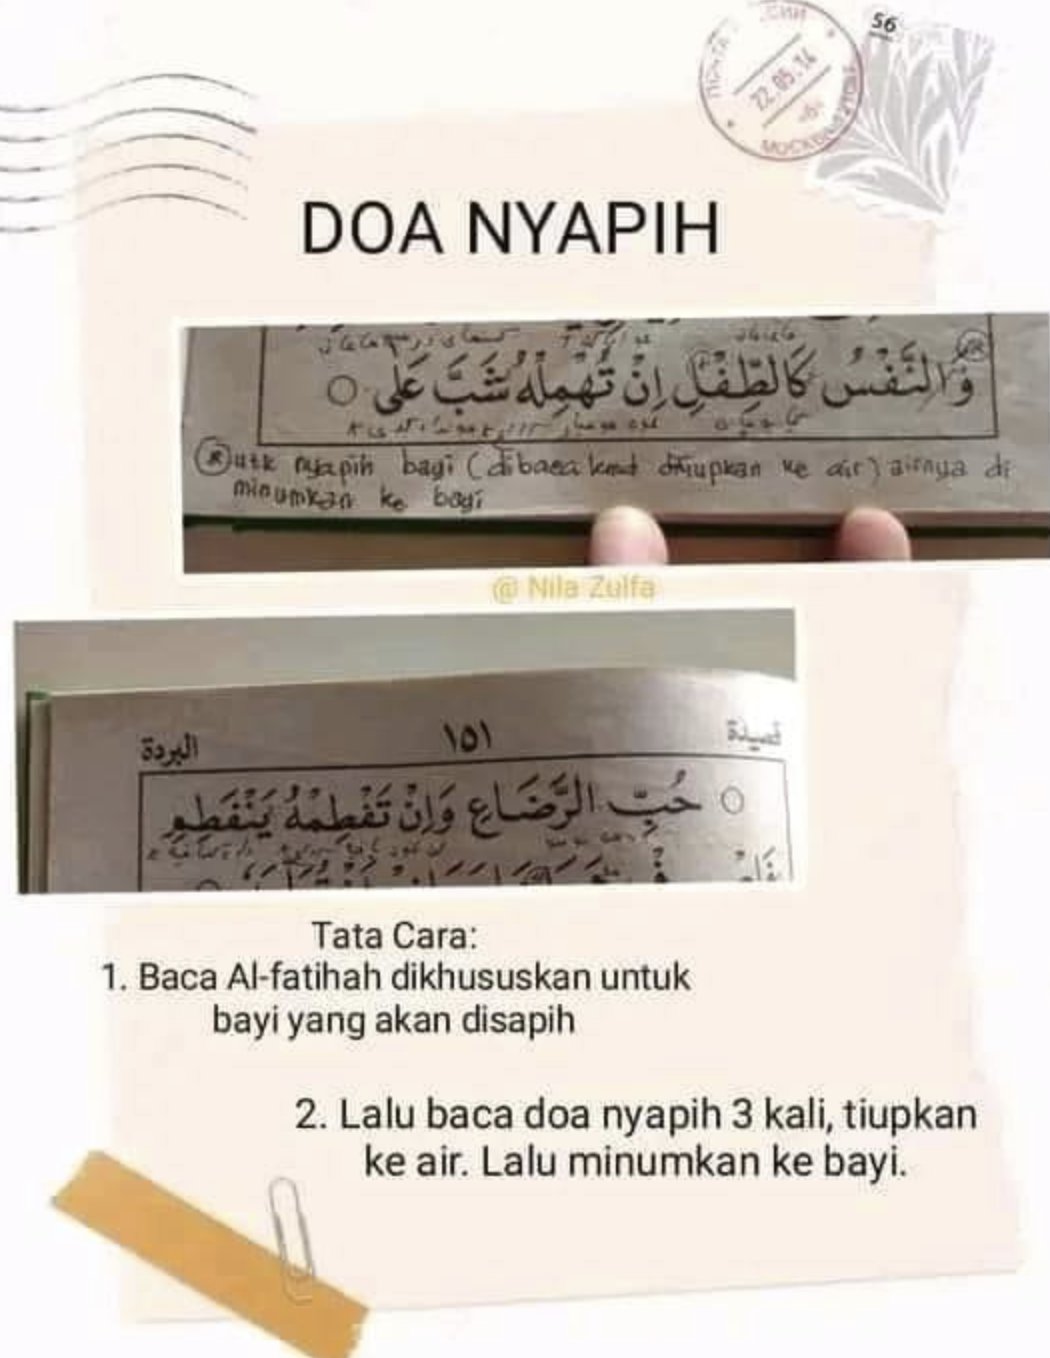 56
22.05.14
МОСКВА
DOA NYAPIH
وَالنَّفْسُ كَالطِّفْلِ اِنْ تُهْمِلْهُ شَبَّ عَلٰى
utk nyapih bayi (dibaca kmd ditiupkan ke air) airnya di
minumkan ke bayi
@ Nila Zulfa
قصيدة ١٥١ البردة
حُبِّ الرَّضَاعِ وَاِنْ تَفْطِمْهُ يَنْفَطِمِ
Tata Cara:
1. Baca Al-fatihah dikhususkan untuk
bayi yang akan disapih
2. Lalu baca doa nyapih 3 kali, tiupkan
ke air. Lalu minumkan ke bayi.